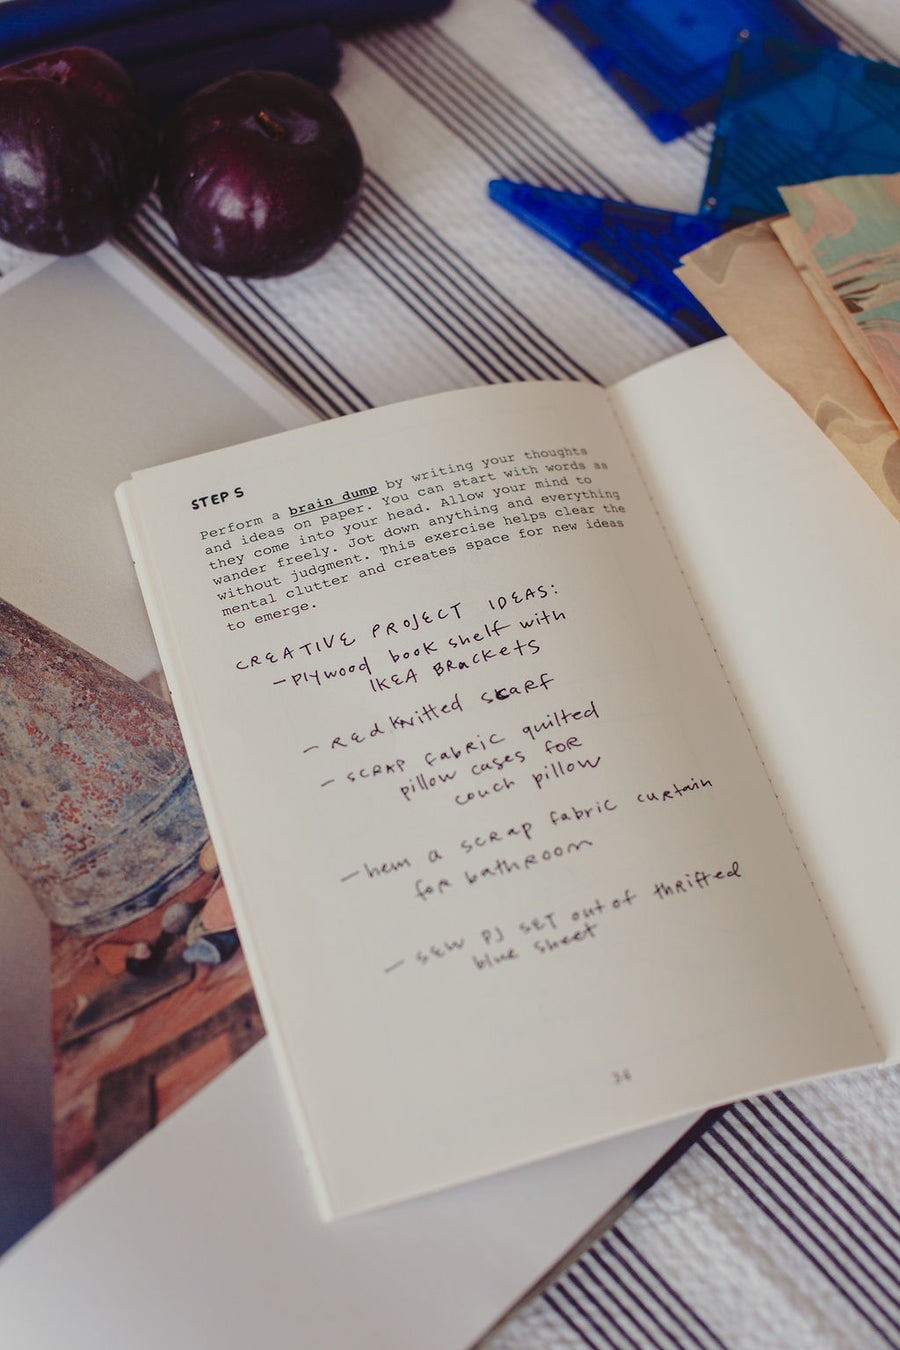 STEP 5
Perform a brain dump by writing your thoughts
and ideas on paper. You can start with words as
they come into your head. Allow your mind to
wander freely. Jot down anything and everything
without judgment. This exercise helps clear the
mental clutter and creates space for new ideas
to emerge.
CREATIVE PROJECT IDEAS:
- PlYwood book shelf with
IKEA BRackets
- REd KNitted scarf
- SCRAP fabRIC quilted
pillow cases foR
couch pillow
- hem a scRap fabric curtain
foR bathROOm
- SEW PJ SET out of thRifted
blue sheet